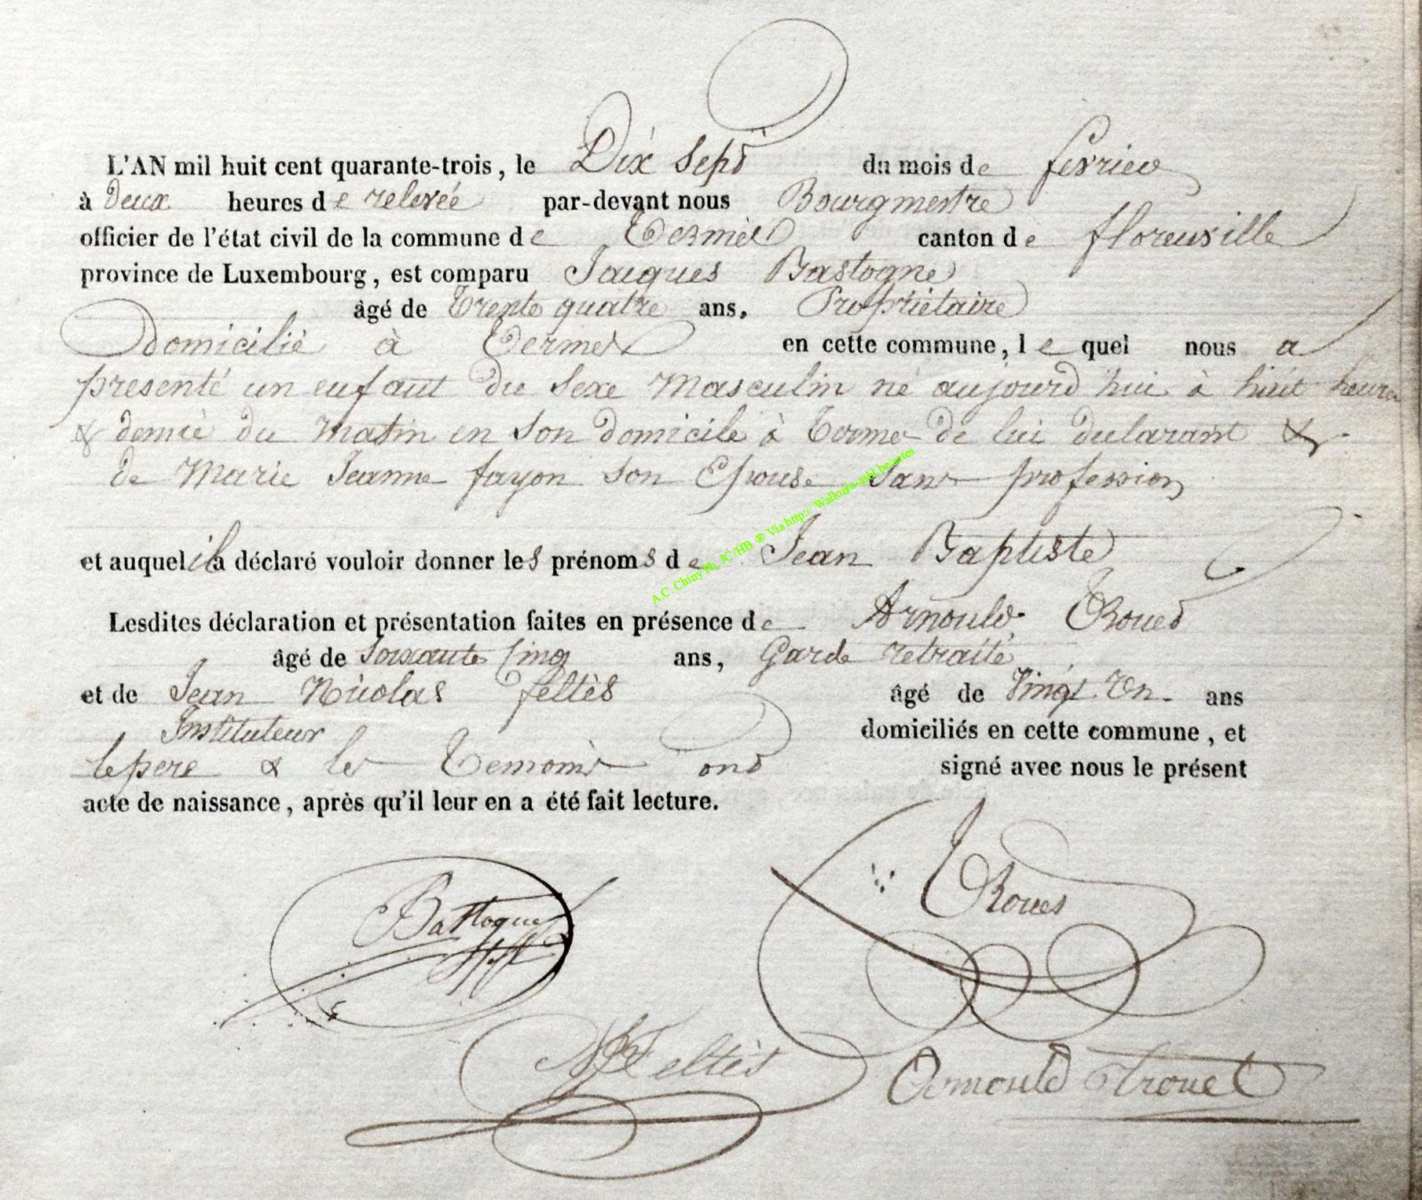 L'AN mil huit cent quarante-trois, le Dix Sept du mois de fevrier
à Deux heures de relevée par-devant nous Bourgmestre
officier de l'état civil de la commune de Termes canton de florenville
province de Luxembourg, est comparu Jacques Bastogne
âgé de Trente quatre ans. Propriétaire
Domicilié à Termes en cette commune, le quel nous a
presenté un enfant du Sexe Masculin né aujourd'hui à huit heures
& demie du Matin en Son domicile à Termes de lui déclarant &
de Marie Jeanne fayon Son Epouse Sans profession
et auquel il a déclaré vouloir donner les prénoms de Jean Baptiste
Lesdites déclaration et présentation faites en présence de Arnould Troued
âgé de Soixante Cinq ans, Garde retraité
et de Jean Nicolas feltès âgé de Vingt Un ans
Instituteur domiciliés en cette commune, et
le pere & les Temoins ont signé avec nous le présent
acte de naissance, après qu'il leur en a été fait lecture.
Bastogne
feltès
Arnould Trouet